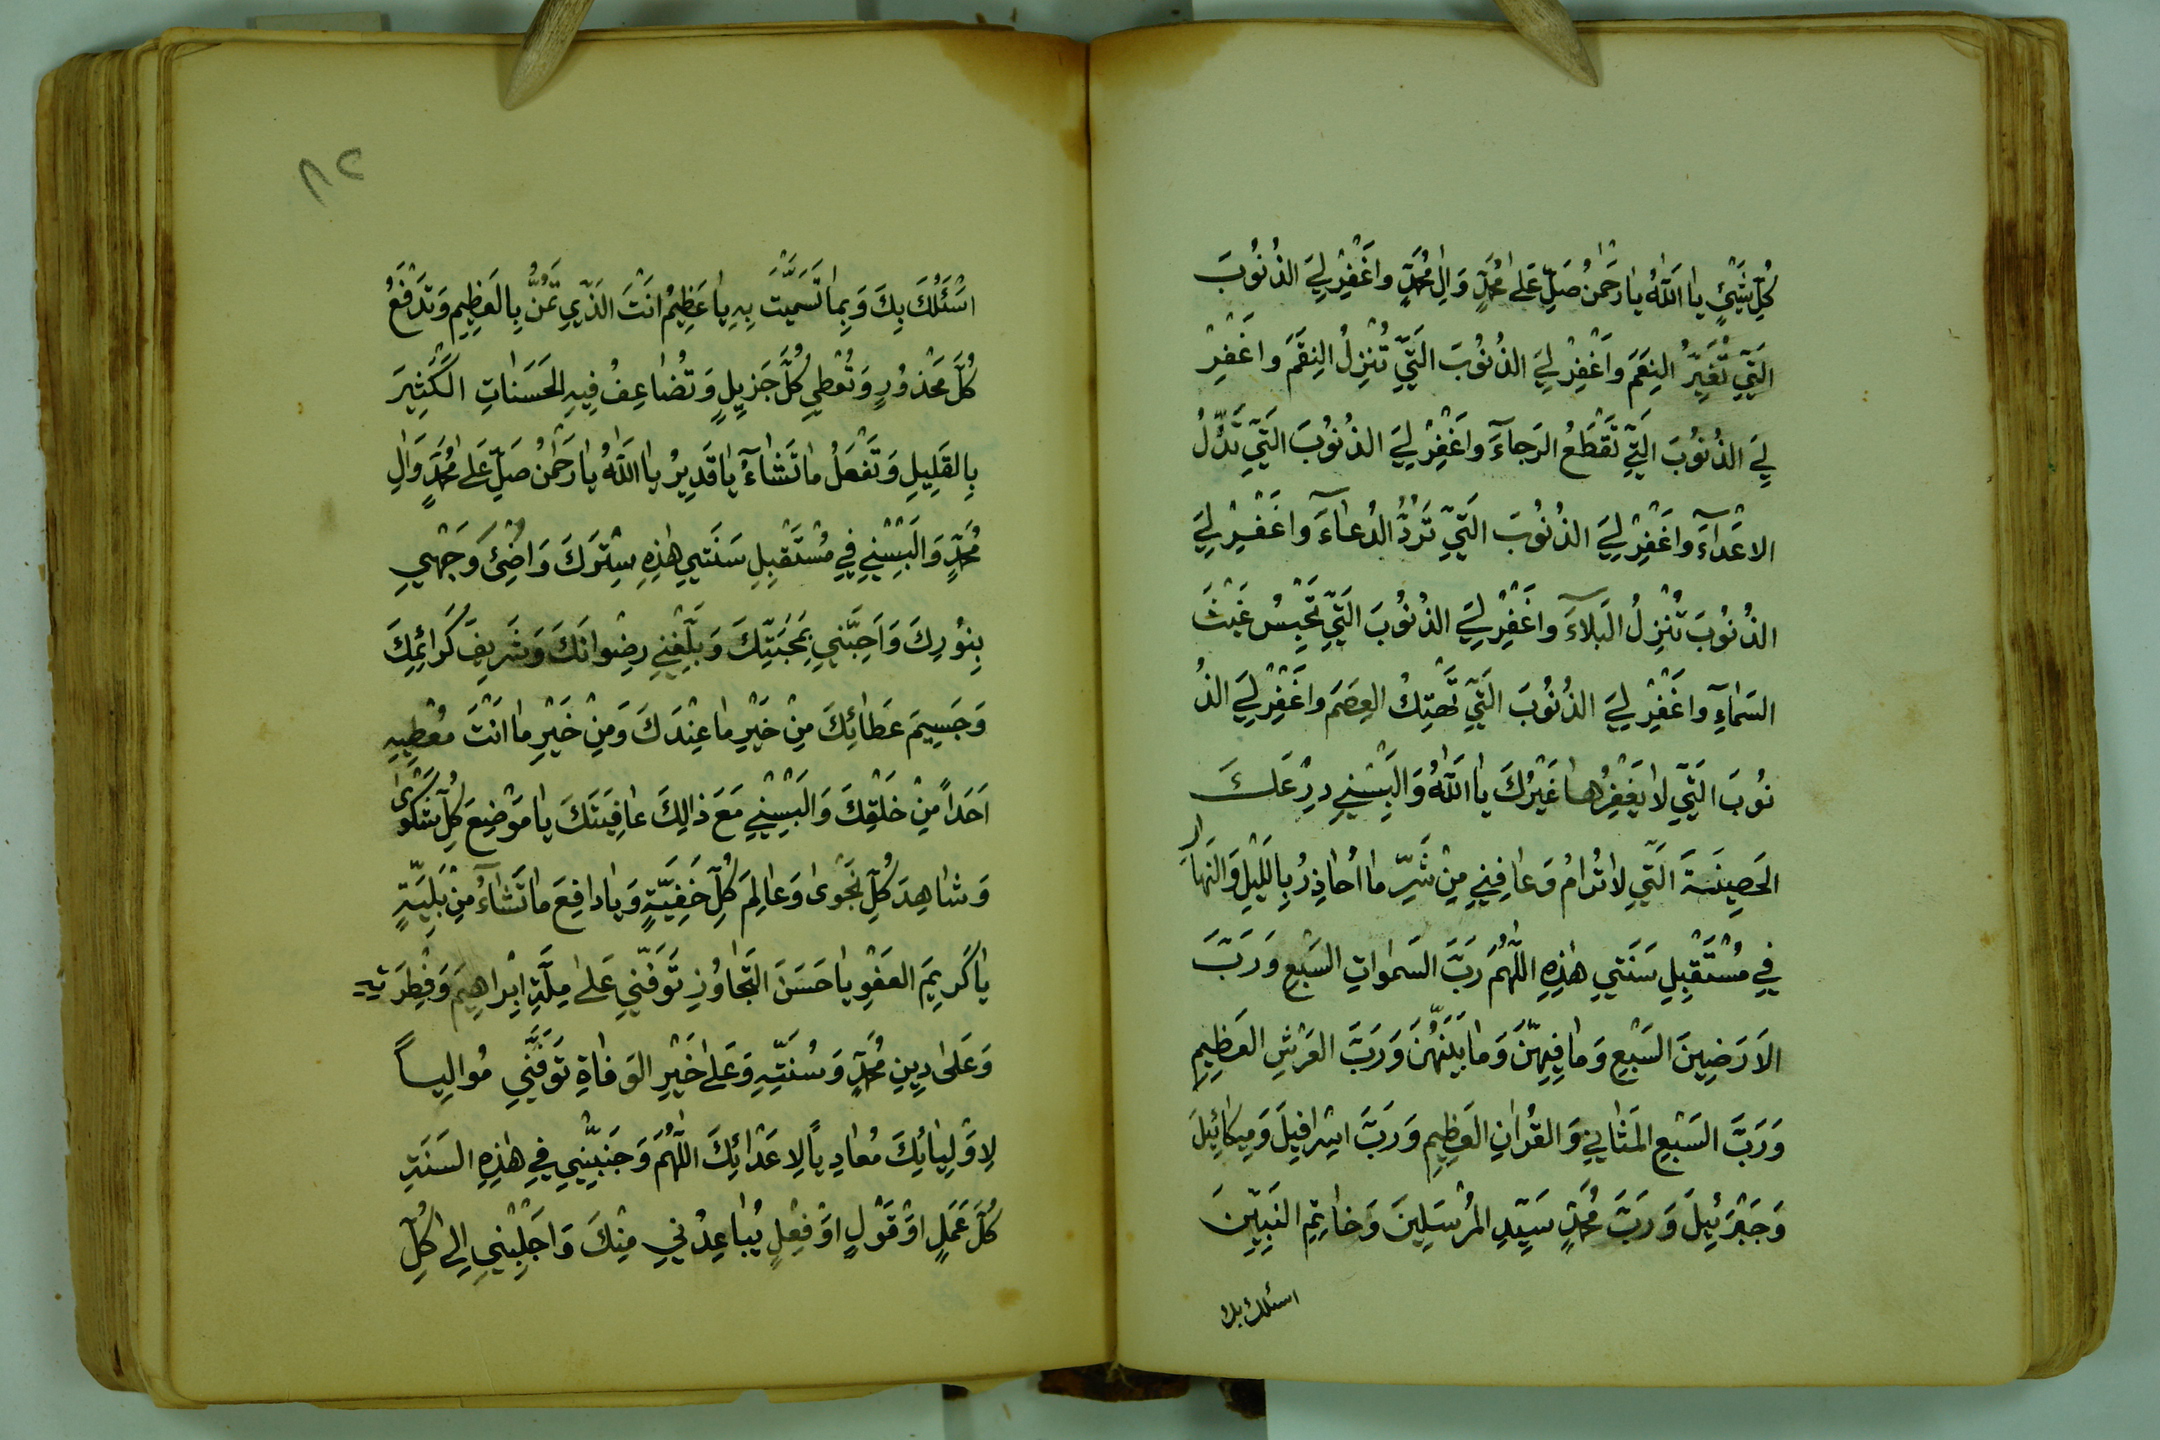 كُلِّ شَيْئٍ يا اَللّٰهُ يا رَحْمٰنُ صَلِّ عَلىٰ مُحَمَّدٍ وَالِ مُحَمَّدٍ واغْفِرْ لِيَ الذُنُوبَ
الَتِّي تُغَيِّرُ النِعَمَ وَاغْفِرْ لِيَ الذُنُوُبَ الَتِّي تُنْزِلُ النِقَمَ واغْفِرْ
لِيَ الذُنُوُبَ الَتِّي تَقْطَعُ الرَجاءَ واغْفِرْ لِيَ الذُنوُبَ الَتّي تَدُّلُ
الاعْداءَ واغْفِرْ لِيَ الذُنُوُبَ الَتِّي تَرُدُّ الدُعاءَ واغْفِرْ لِيَ
الذُنُوُبَ تُنْزِلُ الْبَلاءَ واغْفِرْ لِيَ الذُنُوُبَ الَتِّي تَحْبِسُ غَيْثَ
السَماءِ واغْفِرْ لِيَ الذُنُوُبَ الَتِّي تَهْتِكُ العِصَمَ واغْفِرْ لِيَ الذُ
نُوبَ الَتّي لا يَغْفِرُها غَيْرُكَ يا اَللّٰهُ وَالْبِسْنِي دِرْعَكَ
الحَصِينَةَ الَتّي لا تُرامُ وَعافِنِي مِنْ شَرِّ ما اُحاذِرُ بِاللَيْلِ وَالنَهارِ
فِي مُسْتَقْبِلِ سَنَتِي هٰذِهِ اللّٰهُمَ رَبَّ السَمٰواتِ السَبْعِ وَرَبَّ
الاَرَضِينَ السَبْعِ وَما فِيهِنَّ وَما بَيْنَهُّنَ وَرَبَّ العَرْشِ العَظِيمِ
وَرَبَّ السَبْعِ المَثٰانِي وَالقُرْانِ العَظِيمِ وَرَبَّ اِسْرافِيلَ وَمِيكائِيلَ
وَجَبْرَئِيلَ وَرَبَّ مُحَمَّدٍ سَيِّدِ المُرْسَلِينَ وَخاتِمِ النَبِيّينَ
اسئلك بك
٨٢
اَسْئَلُكَ بِكَ وَبِما تَسَمَّيْتَ بِهِ يا عَظِيمُ اَنْتَ الَذّي تَمُنُّ بِالعَظِيمِ وَتَدْفَعُ
كُلَّ مَحْذوُرٍ وَتُعْطي كُلَّ جَزِيلٍ وَتُضاعِفُ فِيهِ الحَسَناتِ الكَثِيرَ
بِالقَلِيلِ وَتَفْعَلُ ما تَشاءُ يا قَدِيرُ يا اَللّٰهُ يا رَحْمٰنُ صَلِّ عَلىٰ مُحَمَّدٍ وَالِ
مُحَمَّدٍ وَالْبِسْنِي فِي مُسْتَقْبِلِ سَنَتِي هٰذِهِ سِتْرَكَ وَاضِئْ وَجْهي
بِنوُرِكَ وَاَحِبَّني بِمَحَبَتِّكَ وَبَلِّغْنِي رِضْوانَكَ وَشَرِيفَ كَرائِمِكَ
وَجَسِيمَ عَطائِكَ مِنْ خَيْرِ ما عِنْدَكَ وَمِنْ خَيْرِ ما اَنْتَ مُعْطِيهِ
اَحَداً مِنْ خَلْقِكَ وَالْبِسْنِي مَعَ ذالِكَ عافِيَتَكَ يا مَوْضِعَ كُلِّ شَكْوىٰ
وَشاهِدَ كُلِّ نَجْوىٰ وَعالِمَ كُلِّ خَفِيَّةٍ وَيا دافِعَ ما تَشاءُ مِنْ بَلِيَّةٍ
يا كَرِيمَ العَفْوِ يا حَسَنَ التَجاوُزِ تَوَفَّنِي عَلىٰ مِلَّةِ اِبْراهِيمَ وَفِطْرَتِهِ
وَعَلىٰ دِينِ مُحَمَّدٍ وَسُنَتِّهِ وَعَلىٰ خَيْرِ الوَفاةِ تَوَفَّنِي مُوالِياً
لِاَوْلِيائِكَ مُعادِياً لِاَعْدائِكَ اللّٰهُمَ وَجَنِبّْنِي فِي هٰذِهِ السَنَةِ
كُلَّ عَمَلٍ اَوْ قَوْلٍ اَوْ فِعْلٍ يُباعِدُني مِنْكَ وَاجْلِبْنِي اِلىٰ كُلِّ